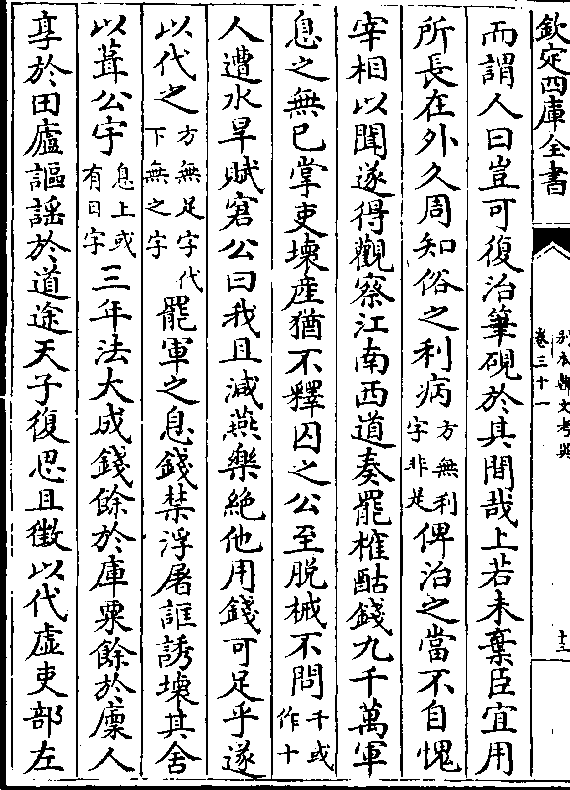 欽定四庫全書
别本韓文考異
卷三十一
十三
而謂人曰豈可復治筆硯於其間哉上若未棄臣宜用
所長在外久周知俗之利病方無利字非是俾治之當不自愧
宰相以聞遂得觀察江南西道奏罷榷酤錢九千萬軍
息之無已掌吏壞産猶不釋囚之公至脱械不問千或作十
人遭水旱賦窘公曰我且減燕樂絶他用錢可足乎遂
以代之方無足字代下無之字罷軍之息錢禁浮屠誑誘壞其舍
以葺公宇息上或有日字三年法大成錢餘於庫粟餘於廪人
享於田廬謳謡於道途天子復思且徴以代虚吏部左